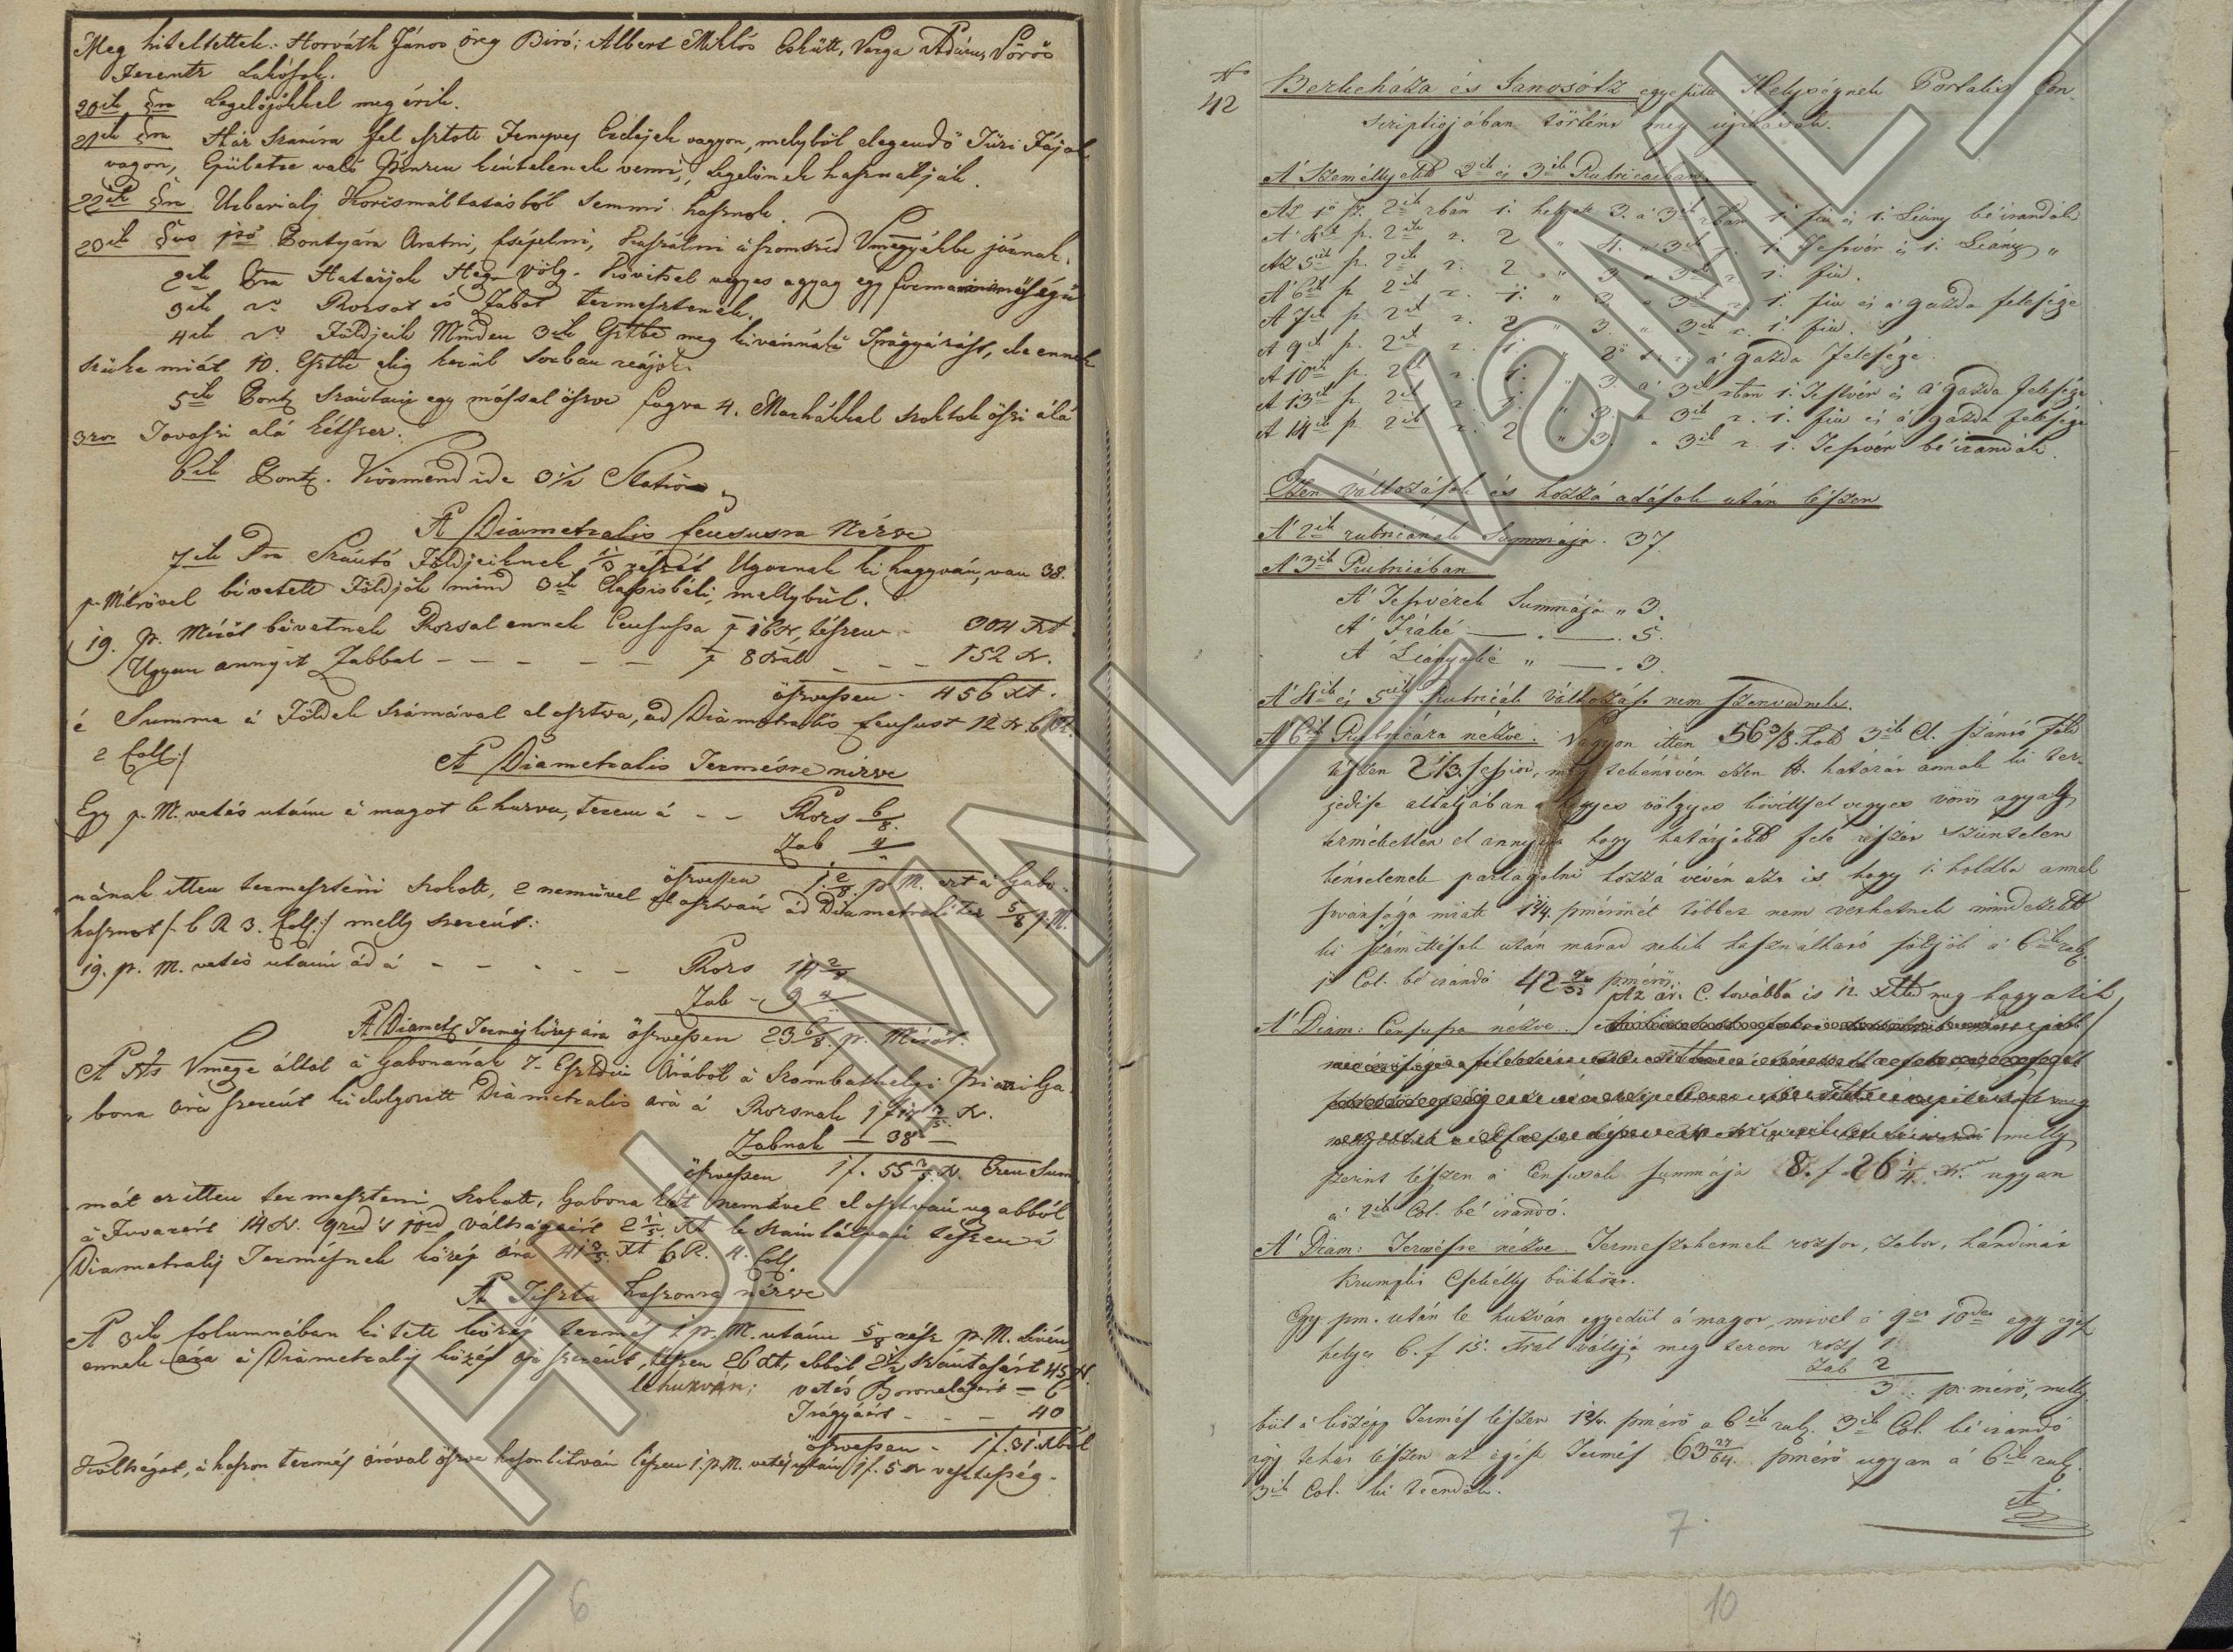 Meg hiteltettek: Horváth János öreg Biró; Albert Miklós Eskütt, Varga Ádám, Vörös
Ferentz Lakósok.
20ik §ra Legelőjökkel meg érik.
21ik §ra Ház Számra fel osztott Fenyves Erdejek vagyon, melyböl elegendő Tűzi Fájok
vagon, Épületre való pénzen kéntelenek venni, Legelőnek használják.
22ik §ra Urbarialis Korcsmáltatásból semmi hasznok.
23ik §us 1ső Pontyára Aratni, tsépelni, Kaszálni a szomszéd Vmegyékbe járnak.
2ik §ra Határjok Hegy völgy. Kövitsel vegyes agyag egy forma minéműségű
3ik r. Rozsot és Zabot termesztenek.
4ik r. Földjeik Minden 3ik Esztbe meg kivánnák Trágyázást, de ennek
szüke miát 10. Esztbe alig kerül sorban reájok.
5ik Pont Szántani egy mással öszve fogva 4. Marhákkal szoktak öszi alá
3szor Tavaszi alá kétszer.
6ik Pont. Körmend ide 3 1/2 Statio
A Diametralis Censusra Nézve
7ik Pra Szántó Földjeiknek 1/3 részét Ugarnak ki hagyván, van 38.
p. Mérővel bévetett Földjök mind 3ik Classisbéli, mellybül.
19. p. Mérőt bévetnek Rozsal ennek Censussa 16 Xr, tészen - 304 Xr.
Ugyan annyit Zabbal - - - - - 8 Xral - - - 152 Xr.
öszvessen - 456 Xr.
é Summa a Földek számával el osztva, ad Diametralis Censust 12 Xr.
2 Col:/
A Diametralis Termésre nézve
Egy p. M. vetés utánn a magot le huzva, terem á - - Rozs 6/8.
Zab 4/"
öszvessen 1. 2/8. p. M. ezt a Gabo-
nának itten termeszteni szokott, 2 neművel el osztván ád Diametraliter 5/8 p. M.
hasznot /: 6 R 3. Col:/ melly szerént:
19. p. M. vetés utánn ád á - - - - - Rozs 14 2/8
Zab - 9 4/"
öszvessen 23 6/8. p. Mérőt.
A Diamet. Termés közép ára
A Nts Vmegye által a Gabonának 7. Esztdei Árából a Szombathelyi piaczi Ga-
bona ára szerént ki dolgozott Diametralis ára á Rozsnak 1 f 17 2/5 Xr.
Zabnak — 38 —
öszvessen 1 f. 55 2/5. Xr. Ezen Sum
mát az itten termeszteni szokott, Gabona két nemével el osztván ug abból
a Fuvarért 14 Xr. 9ed 's 10ed váltságaért 2 1/5. Xr le számlálván tészen a
Diametralis Termésnek közép ára 41 3/5. Xr 6 R. 4. Col.
A Tiszta haszonra nézve
A 3ik Columnában ki tett közép termés 1 p. M. utánn 5/8 rész p. M. lévén
ennek ára a Diametralis közép ár szerént, tészen 26 Xr, ebböl 2 1/2 szántásért 45 Xr.
lehuzván; vetés Boronalásért = 6
Trágyáért - - - 40
öszvessen - 1 f. 31 Xból
Költséget, a haszon termés áróval öszve hasonlitván lészen 1. p. M. vetés után 1 f. 5 Xr vesztesség.
6
N
42
Berkeháza és Janosótz egyesült Helységnek Portalis Con-
scriptiojában történt meg ujitások.
A' Személlyekk 2ik és 3ik Rubricaiban.
Az 1ső p. 2ik rban 1. helyett 3. a 3ik rban 1 fiu és 1. Leány bé irandók
A' 4ik p. 2ik r. 2 " 4. a 3ik r. 1. Testvér és 1. Leány "
Az 5ik p. 2ik r. 2 " 3 a 3ik r 1. fiu.
A' 6ik p 2ik r. 1. " 3 a 3ik r. 1. fiu és a' gazda felesége
A 7ik p. 2ik r. 2 " 3. " 3ik r. 1. fiu.
A 9ik p. 2ik r. 1. " 2ő a' gazda felesége.
A 10ik p. 2ik r. 1. " 3. a' 3ik rban 1. Testvér és a' gazda felesége
A 13ik p. 2ik r. 1. " 3. a 3ik r. 1. fiu és a' gazda felesége
A 14ik p. 2ik r. 2 " 3. a 3ik r. 1. Testvér bé irandók.
Ezen változások és hozzá adások után lészen
A' 2ik rubricának Summája. 37.
A' 3ik Rubricában
A' Testvérek Summája " 3.
A' Fiaké — . — . 5.
A' Leányoké " — . 3.
A' 4ik és 5ik Rubricák változást nem szenvednek.
A' 6ik Rubricára nézve. Vagyon itten 56 3/8. hold 3ik Cl. szántó föld
tészen 2 1/3. sessiot, meg tekéntvén ezen H. határát annak ki ter-
jedése általjában hegyes völgyes kövittsel vegyes vörös agyag
terméketlen el annyira hogy határjokk fele részét szüntelen
kéntelenek parlagolni hozzá vévén azt is hogy 1. holdba annak
soványsága miatt 1 2/4. pmérőnél többet nem vethetnek mindezekk
ki számittások után marad nekik használható földjök a' 6ik rub.
1ső Col. bé irandó 42 pmérő.
A' Diam: Censusra nézve. Az ár. C. továbbá is 12. Xrba meg hagyatik,
melly
szerint lészen a' Censusok summája 8. f 26 1/4. Xr. ugyan
a' 2ik Col. bé irandó.
A' Diam: Termésre nézve. Termeszthetnek rozsot, zabot, hardinát
krumplit csekélly bükkönt.
Egy pm. után le huzván egyedül a' magot, mivel a 9es 10des egy egész
helyes 6. f 15. Xral váltja meg terem rozs 1
Zab 2
3 p. mérő, melly
bűl a' középp Termés lészen 1 2/4. pmérő a 6ik rub. 3ik Col. bé irandó
igy tehát lészen az egész Termés 63 27/64. pmérő ugyan a' 6ik rub.
3ik Col. ki teendők.
7.
10
HU-MNL-VaML